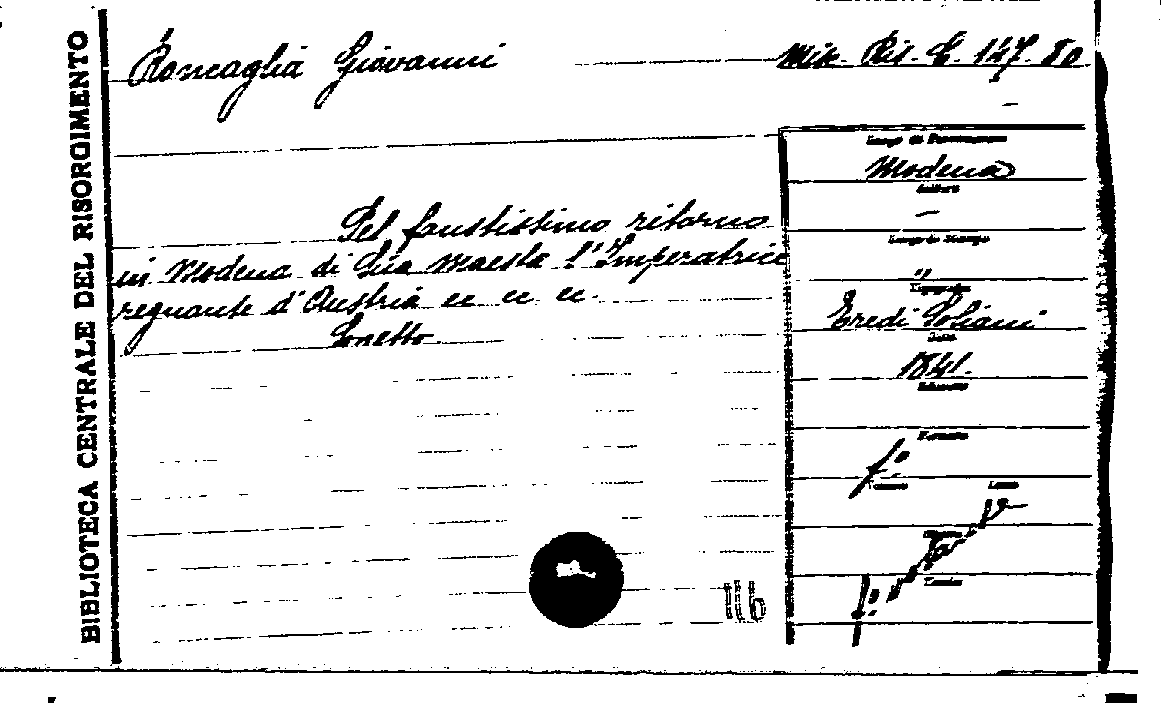 BIBLIOTECA CENTRALE DEL RISORGIMENTO
Roncaglia Giovanni
Misc. Ris. C. 147. 80
Luogo di Provenienza
Modena
Autore
—
Luogo di Stampa
"
Tipografia
Eredi Soliani
Data
1841.
Formato
f.°
Pel faustissimo ritorno
in Modena di Sua Maestà l'Imperatrice
regnante d'Austria ec ec ec.
Sonetto
116